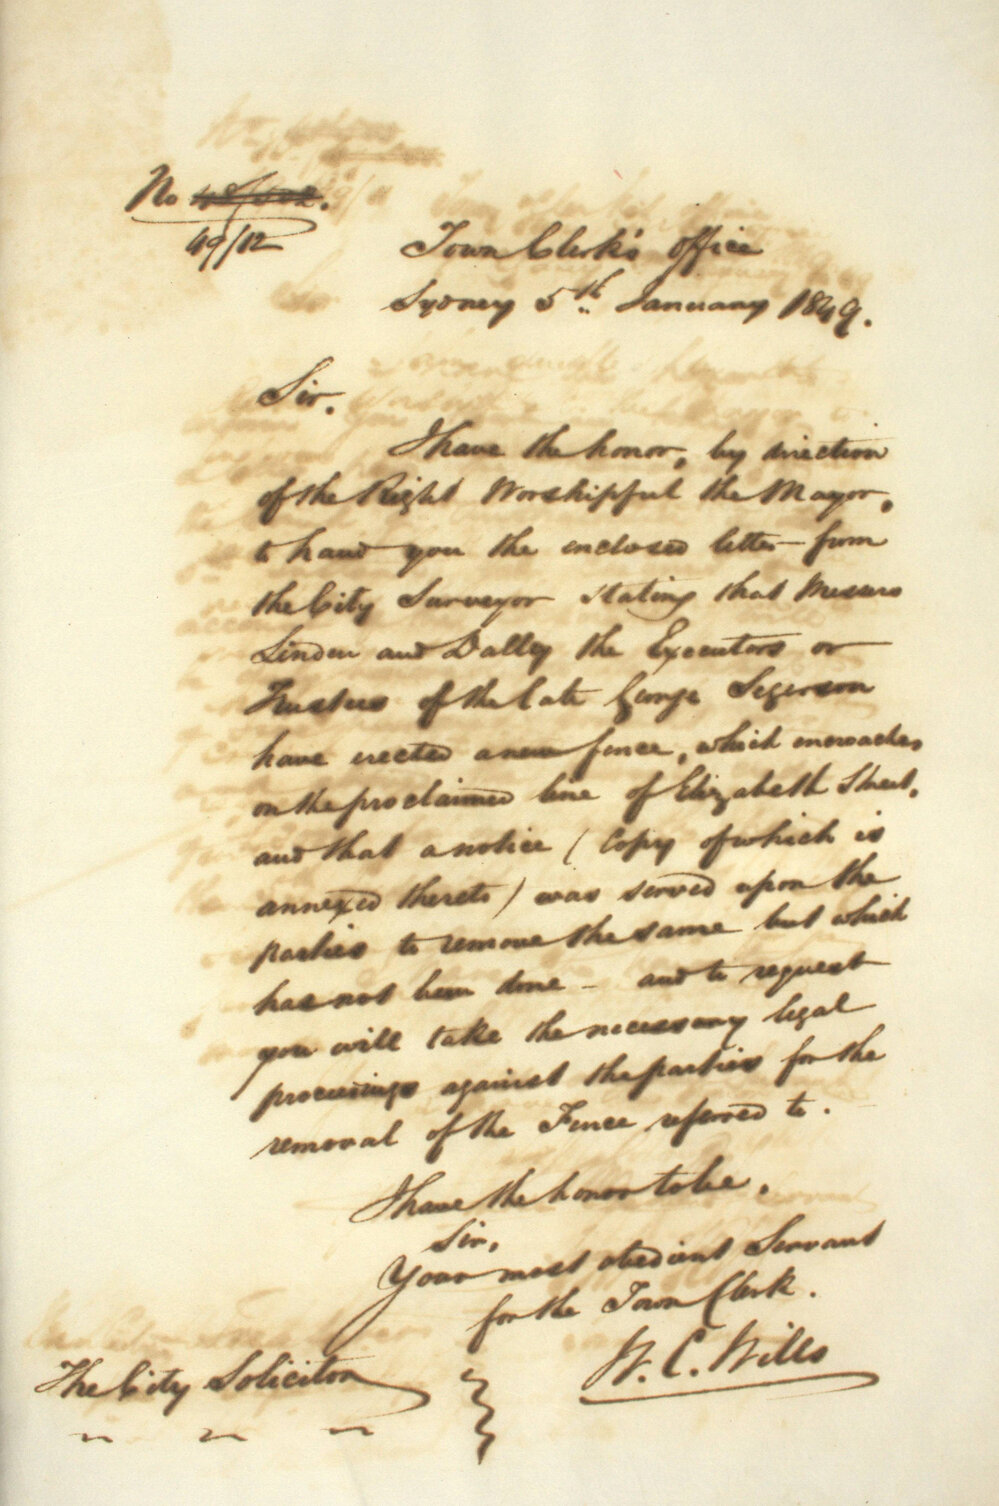 No 48/502.
49/12
Town Clerk's Office
Sydney 5th January 1849.
Sir,
I have the honor, by direction
of the Right Worshipful the Mayor,
to hand you the enclosed letter from
the City Surveyor stating that Messrs
Linden and Dalley the Executors or
Trustees of the late George Segerson
have erected a new fence, which encroaches
on the proclaimed line of Elizabeth Street,
and that a notice (Copy of which is
annexed thereto) was served upon the
parties to remove the same but which
has not been done - and to request
you will take the necessary legal
proceedings against the parties for the
removal of the Fence referred to.
I have the honor to be,
Sir,
Your most obedient Servant
for the Town Clerk.
W. C. Wills
The City Solicitor